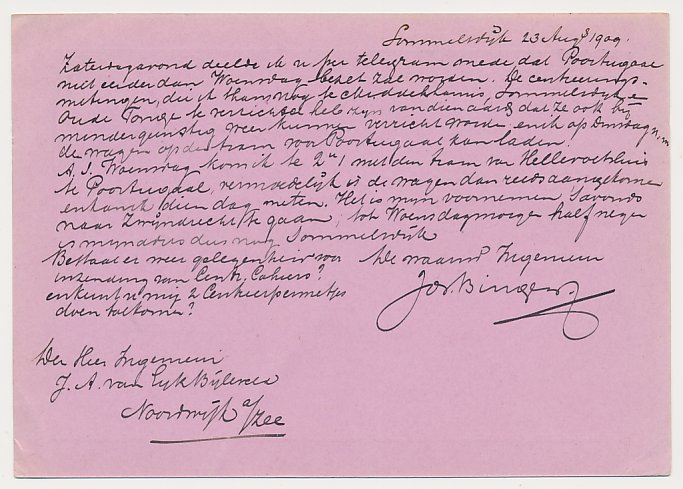 Sommelsdijk 23 Augs 1909.
Zaterdagavond deelde ik u per telegram mede dat Poortugaal
niet eerder dan Woensdag bezet zal worden. De centreerings-
metingen, die ik thans nog te Middelharnis, Sommelsdijk en
Oude Tonge te verrichten heb zijn van dien aard dat ze ook bij
minder gunstig weer kunnen verricht worden en ik op Dinsdag n.m.
de wagen op den tram voor Poortugaal kan laden.
A.S. Woensdag kom ik te 2 u 1 met den tram van Hellevoetsluis
te Poortugaal, vermoedelijk is de wagen dan reeds aangekomen
en kan ik dien dag meten. Het is mijn voornemen, 's avonds
naar Zwijndrecht te gaan; tot Woensdagmorgen half negen
is mijn adres dus nog Sommelsdijk
Bestaat er weer gelegenheid voor
inzending van Centr. Cahiers?
en kunt u mij 2 Centreerpennetjes
doen toekomen?
De waarnd Ingenieur
Den Heer Ingenieur
J. A. van Eyk Bijleveld
Noordwijk a/Zee